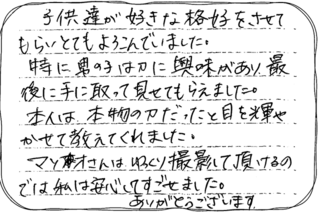 子供達が好きな格好をさせて
もらいとてもよろこんでいました。
特に男の子は刀に興味があり、最
後に手に取って見せてもらえました。
本人は、本物の刀だったと目を輝や
かせて教えてくれました。
マンオさんはゆっくり撮影して頂けるの
では私は安心してすごせました。
ありがとうございます